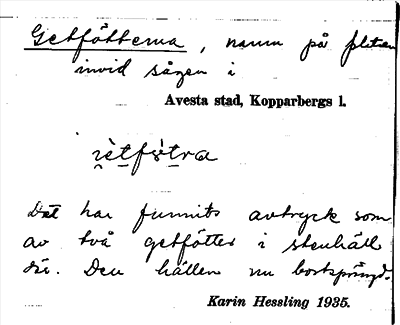 Getfötterna, namn på platsen
invid sågen i
Avesta stad, Kopparbergs l.
Det har funnits avtryck som
av två getfötter i stenhäll
där. Den hällen nu bortsprängd.
Karin Hessling 1935.